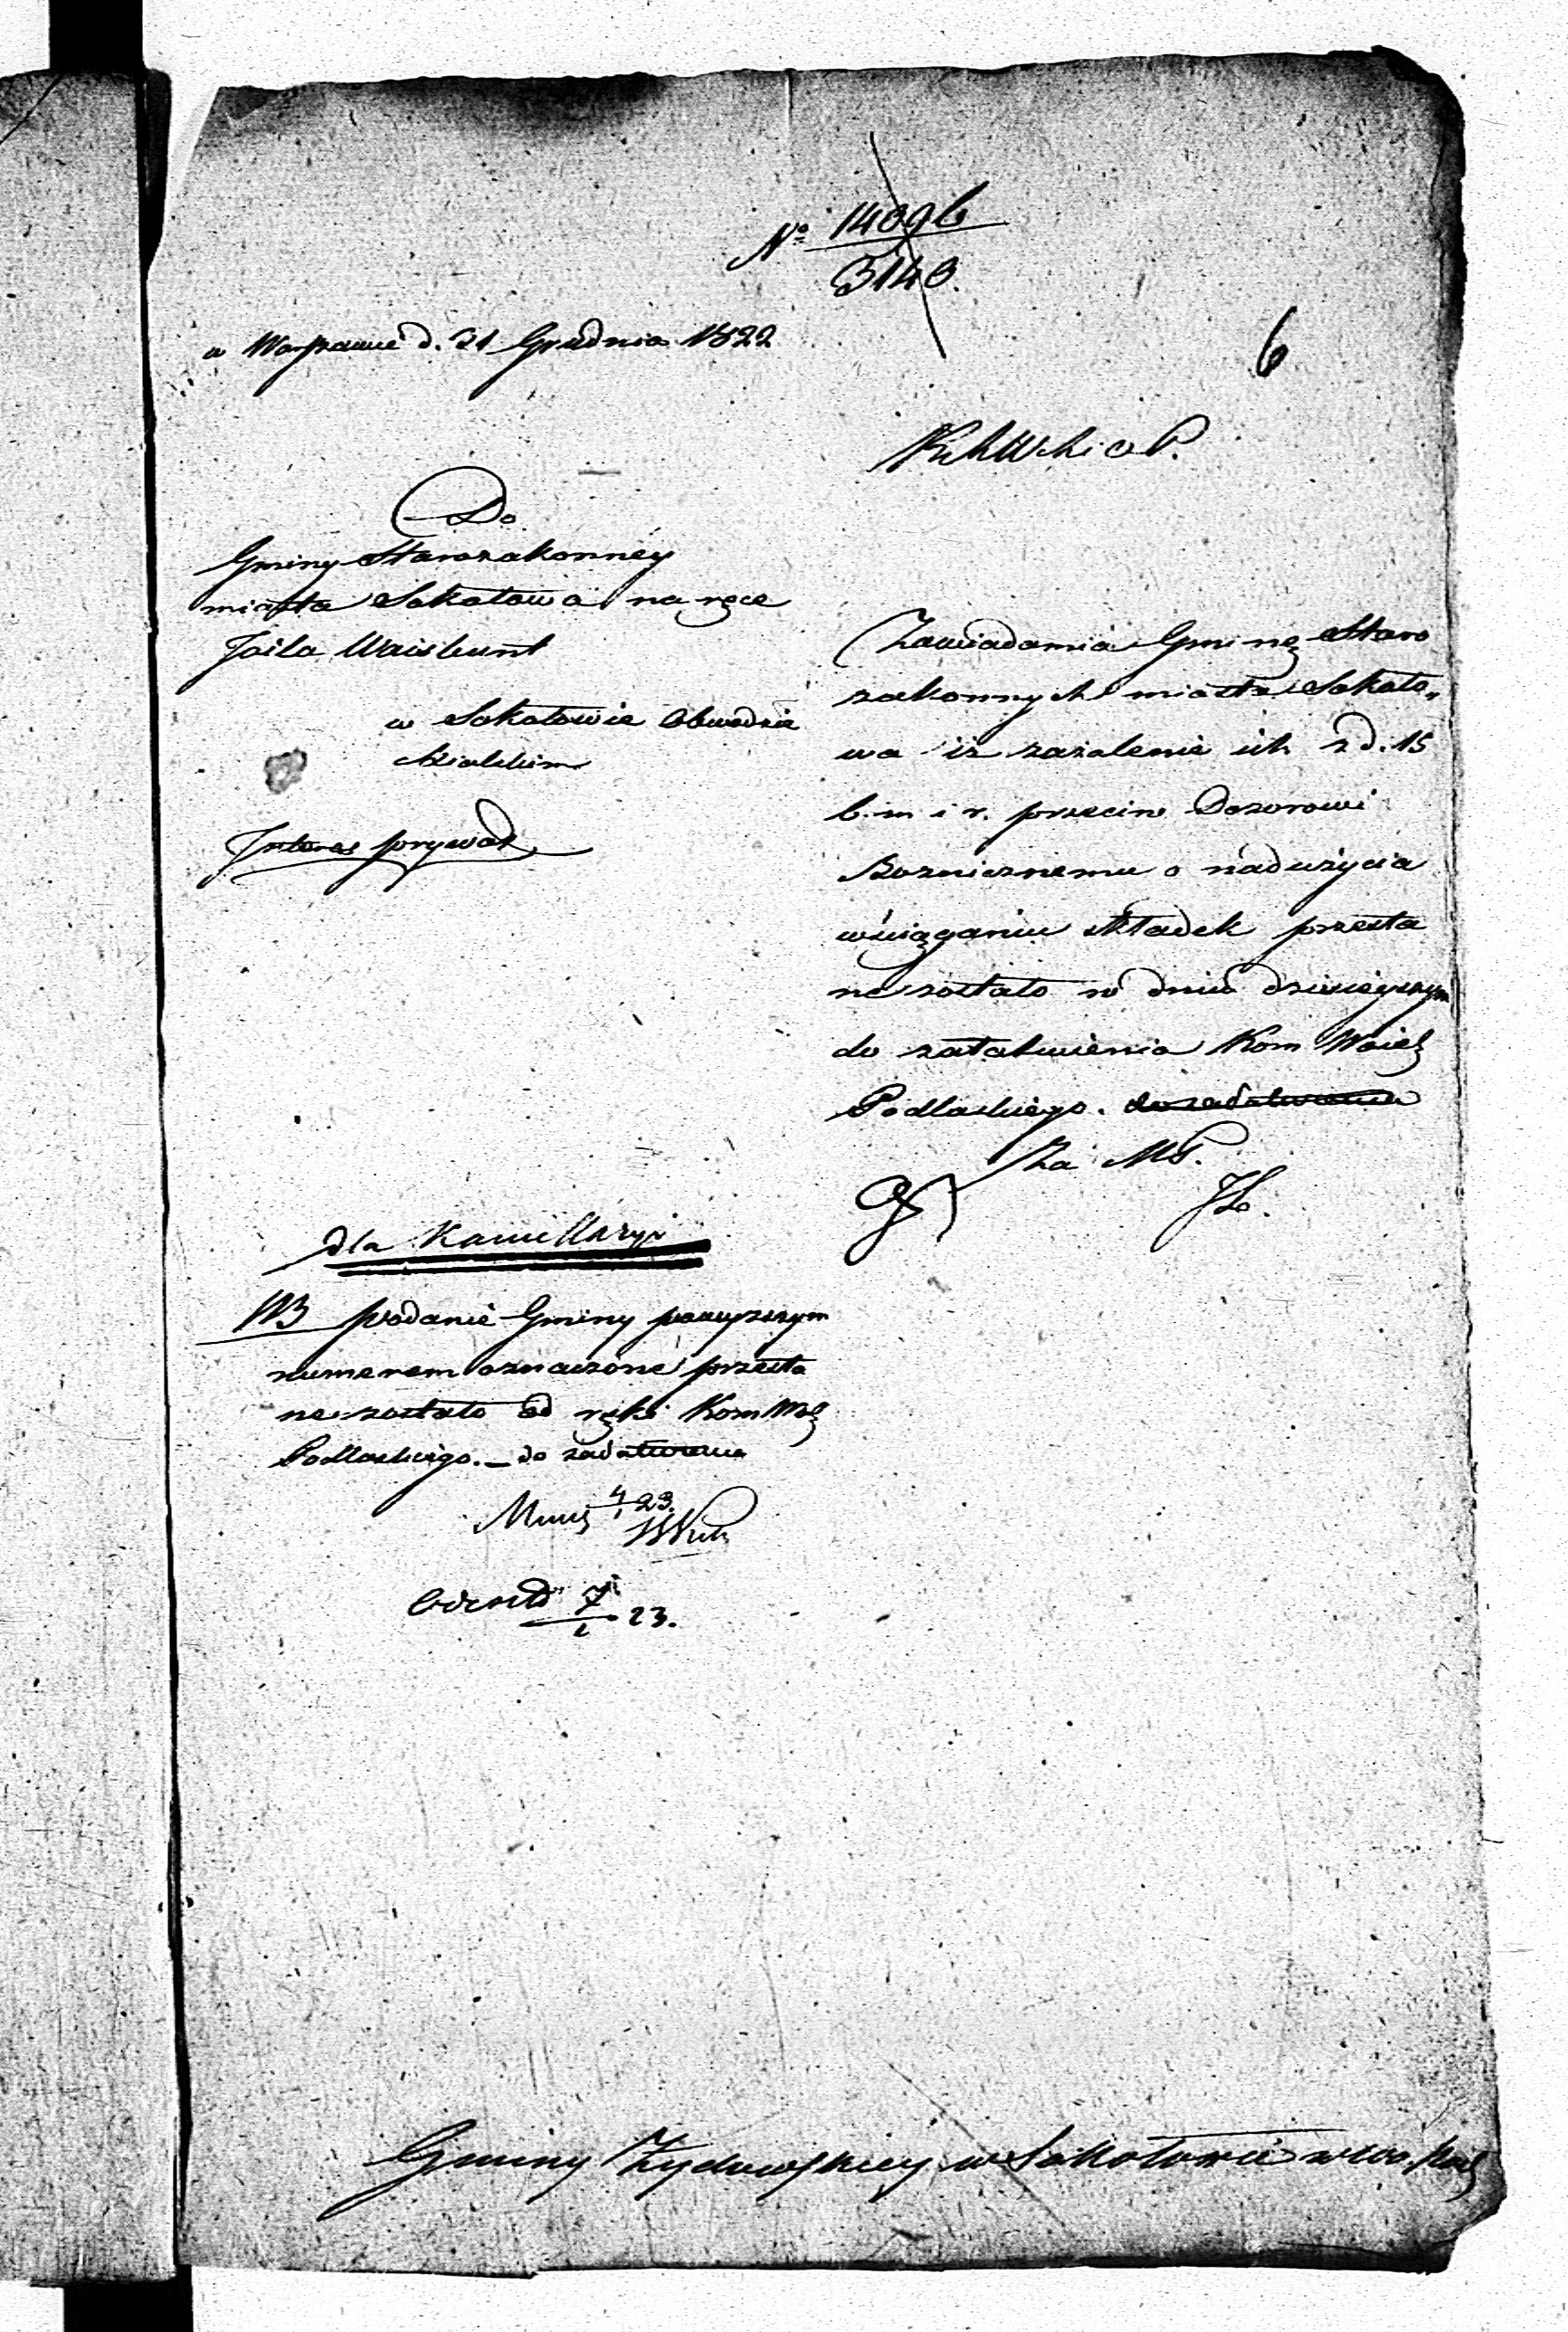 No 14096
3140.
w Warszawie d. 31 Grudnia 1822
6
Do
Gminy Starozakonney
miasta Sokołowa na ręce
Joila
w Sokołowie Obwodzie
Siedleckim
Interes prywat
Zawiadamia Gminę Staro
zakonnych miasta Sokoło„
wa iż zażalenie ich z d. 15
b. m i r. przeciw Dozorowi
Bożnicznemu o nadużycia
wściąganiu składek przesła
ne zostało w dniu dzisieyszym
do załatwienia Kom Woiew
Podlaskiego. do załatwienia
Za MP.
dla Kancellaryi
NB podanie Gminy powyższym
numerem oznaczone przesła
ne zostało od ręki Kom Wo
Podlaskiego. – do załatwienia
4/1 23.
7/1 23.
Gminy Żydowskiey w Sokołowie